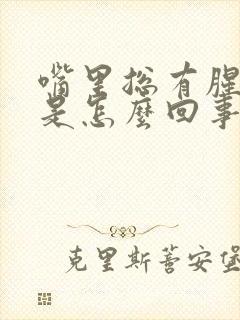 嘴里总有腥
是怎麽回事
克里斯蒂安堡